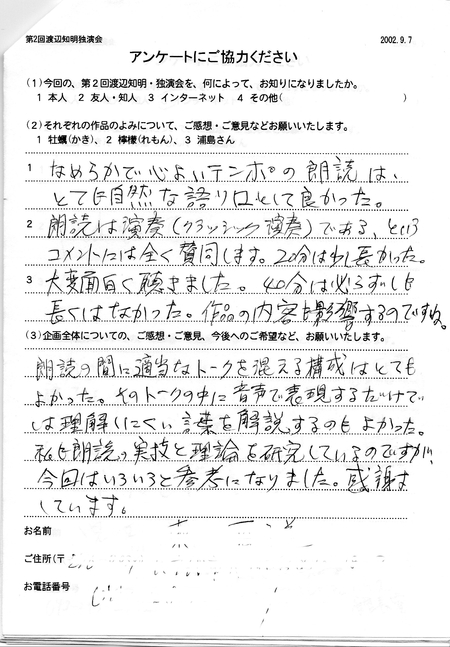 第2回渡辺知明独演会 2002.9.7
アンケートにご協力ください
(1)今回の、第2回渡辺知明・独演会を、何によって、お知りになりましたか。
1 本人 2 友人・知人 3 インターネット 4 その他( )
(2)それぞれの作品のよみについて、ご感想・ご意見などお願いいたします。
1 牡蠣(かき)、2 檸檬(れもん)、3 浦島さん
1 なめらかで心よいテンポの朗読は、
とても自然な語り口として良かった。
2 朗読は演奏(クラッシック演奏)である、という
コメントには全く賛同します。20分は少し長かった。
3 大変面白く聴きました。40分は必らずしも
長くはなかった。作品の内容も影響するのですね。
(3)企画全体についての、ご感想・ご意見、今後へのご希望など、お願いします。
朗読の間に適当なトークを混える構成はとても
よかった。そのトークの中に音声で表現するだけで
は理解しにくい言葉を解説するのもよかった。
私も朗読の実技と理論を研究しているのですが、
今回はいろいろと参考になりました。感謝
しています。
お名前
ご住所(〒
お電話番号